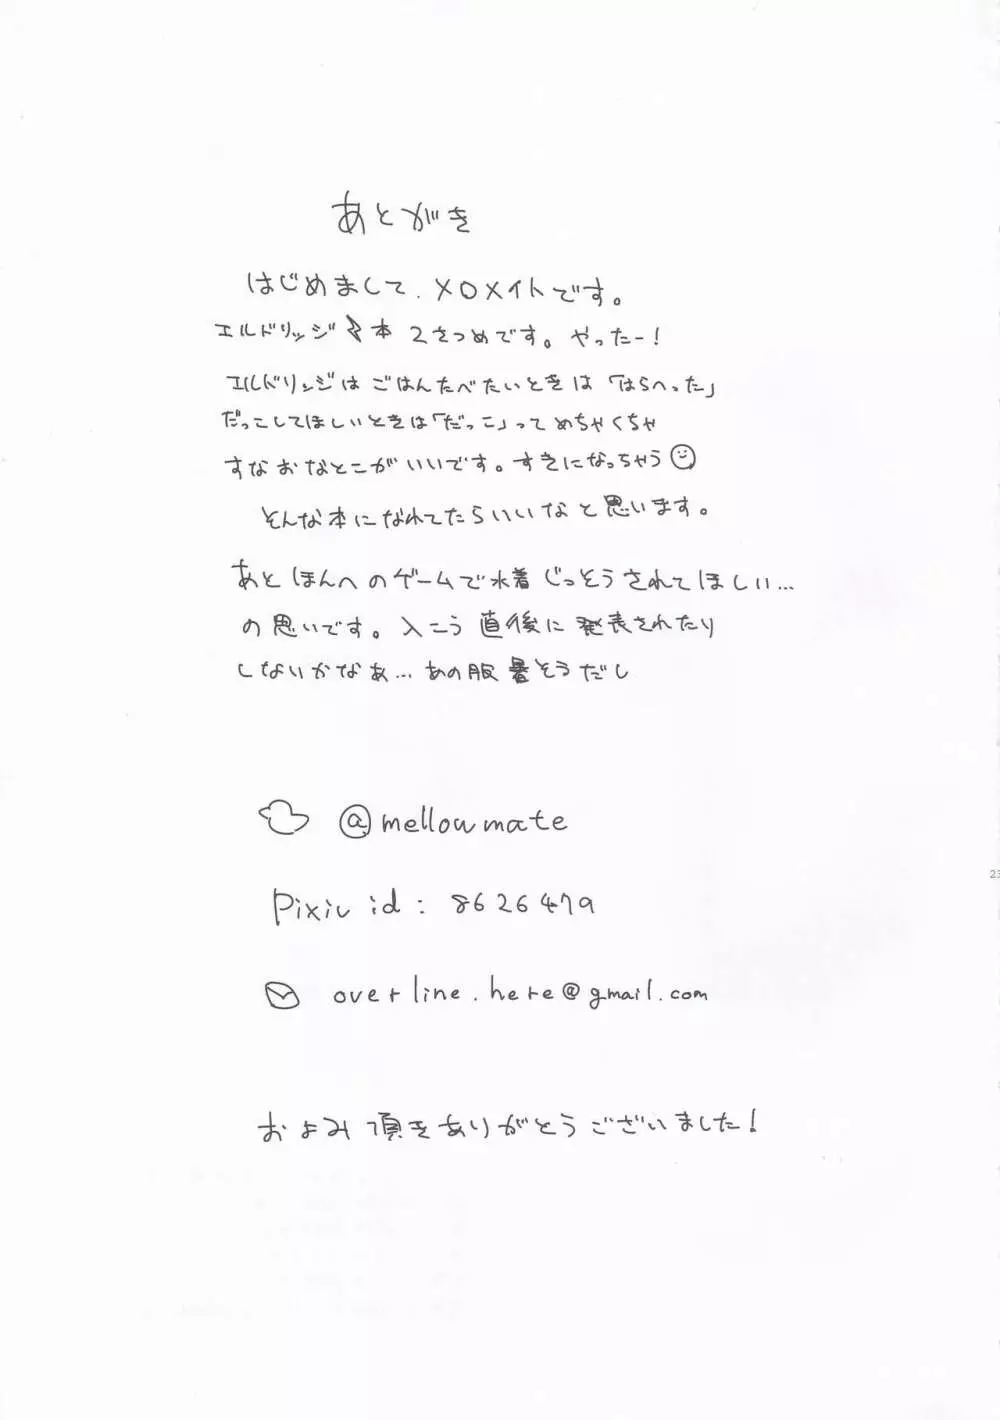 あとがき
はじめまして．メロメイトです。
エルドリッジ本 2さつめです。 やったー！
エルドリッジは ごはんたべたいときは 「はらへった」
だっこしてほしいときは「だっこ」って めちゃくちゃ
すなおなとこがいいです。すきになっちゃう
そんな本になれてたらいいなと思います。
あと ほんへのゲームで水着 じっそうされてほしい…
の思いです。入こう 直後に 発表されたり
しないかなあ… あの服暑そうだし
@mellowmate
pixiv id : 8626479
overline.here@gmail.com
およみ頂きありがとうございました！
23